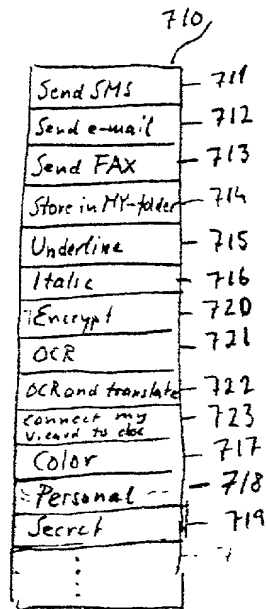 710
Send SMS 711
Send e-mail 712
Send FAX 713
Store in MY-folder 714
Underline 715
Italic 716
Encrypt 720
OCR 721
OCR and translate 722
connect my
v.card to doc 723
Color 717
Personal 718
Secret 719